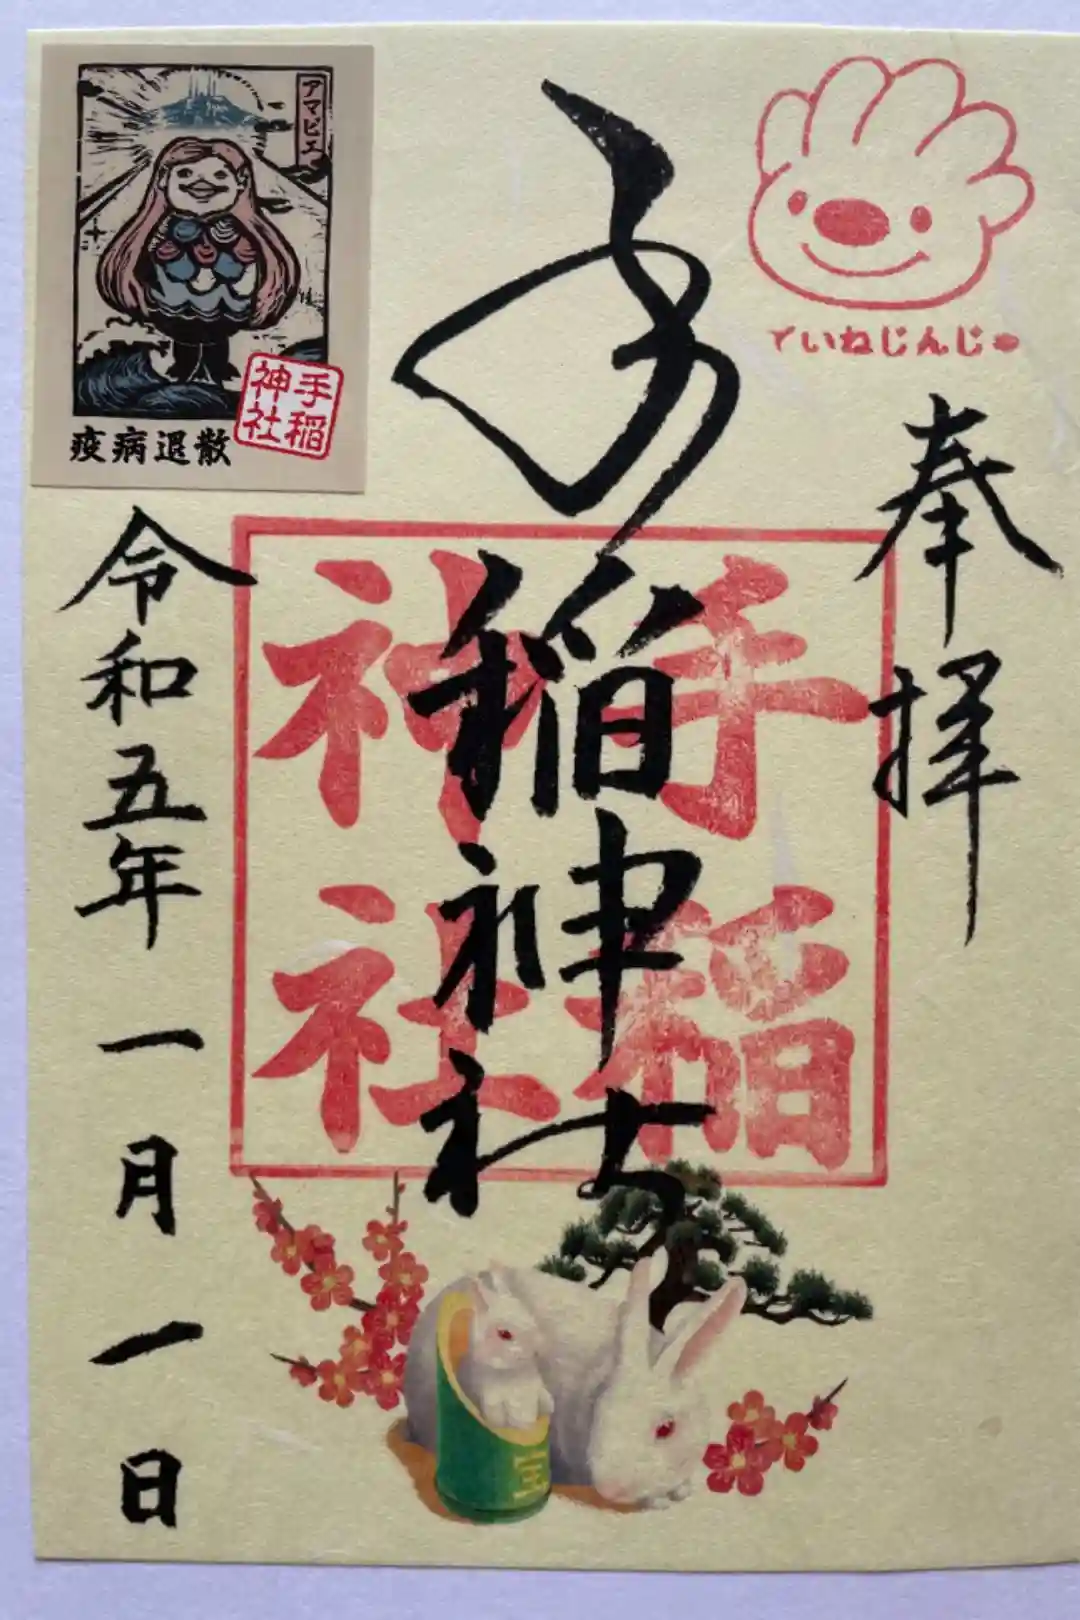 奉拝
手稲神社
令和五年一月一日
手稲神社
ていねじんじゃ
アマビエ
疫病退散
手稲神社